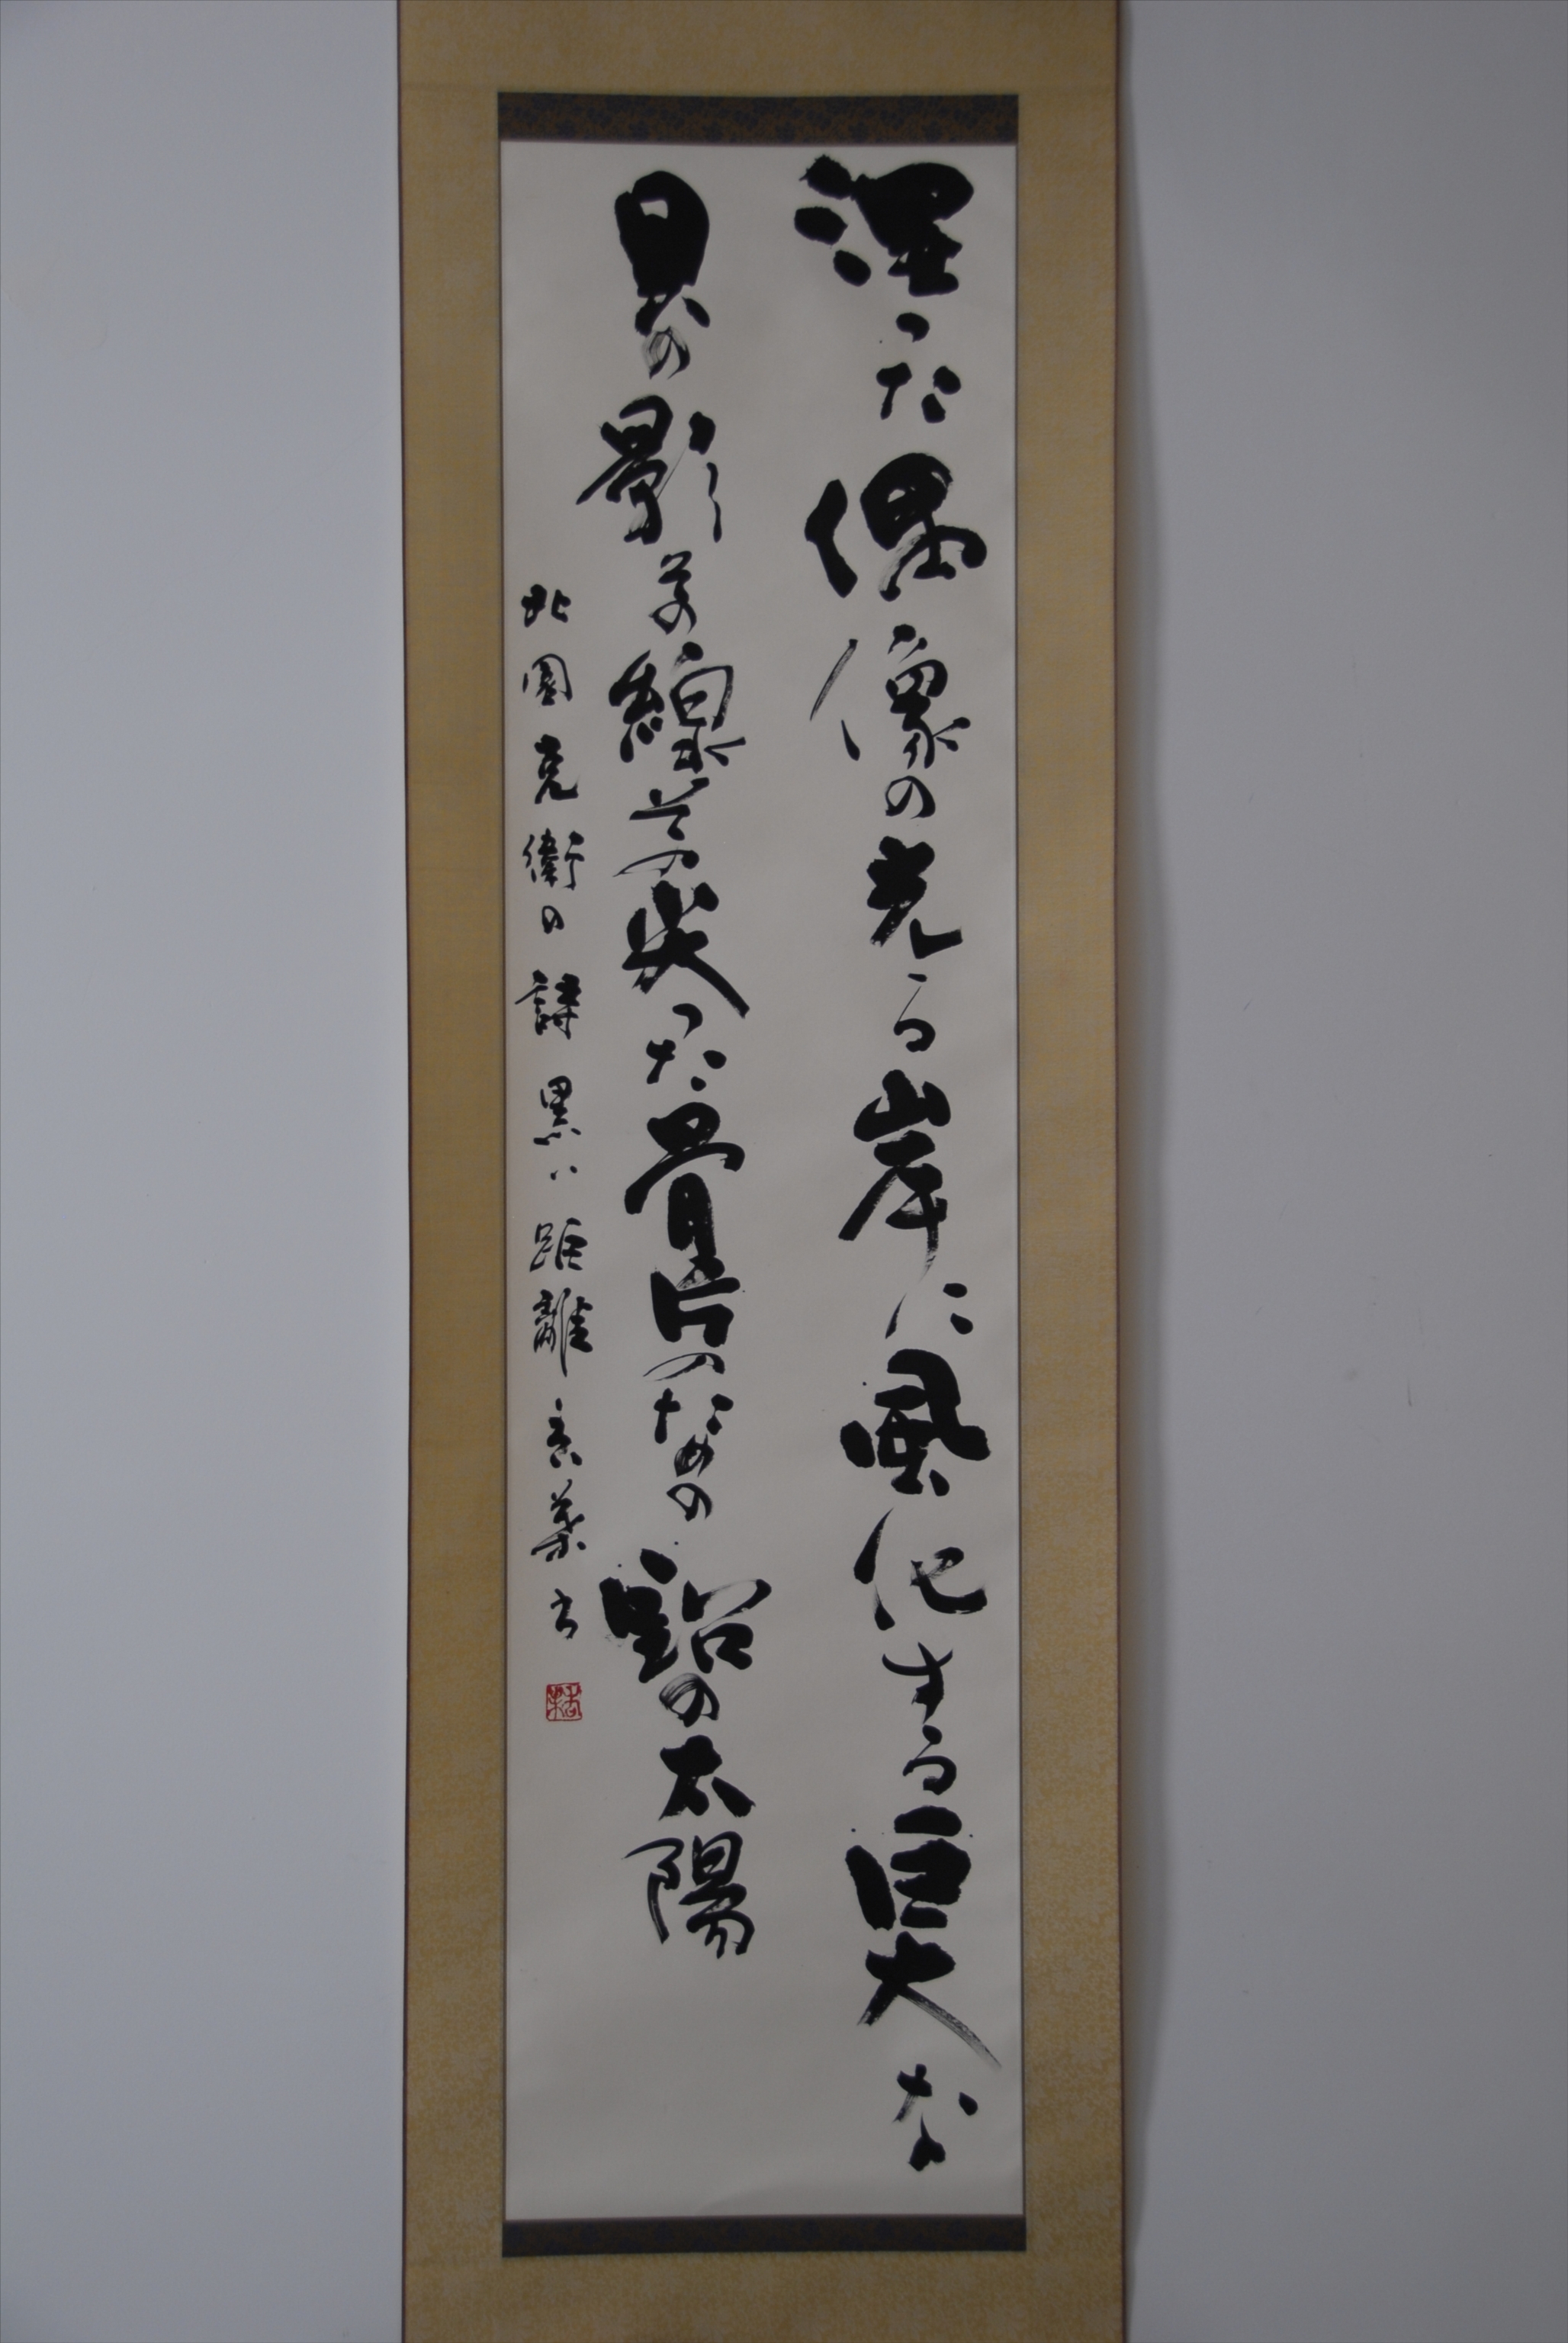 湿った偶像の光る岸に風化する巨大な
貝の影その線その尖った骨片のための鉛の太陽
北園克衛の詩 黒い距離 書